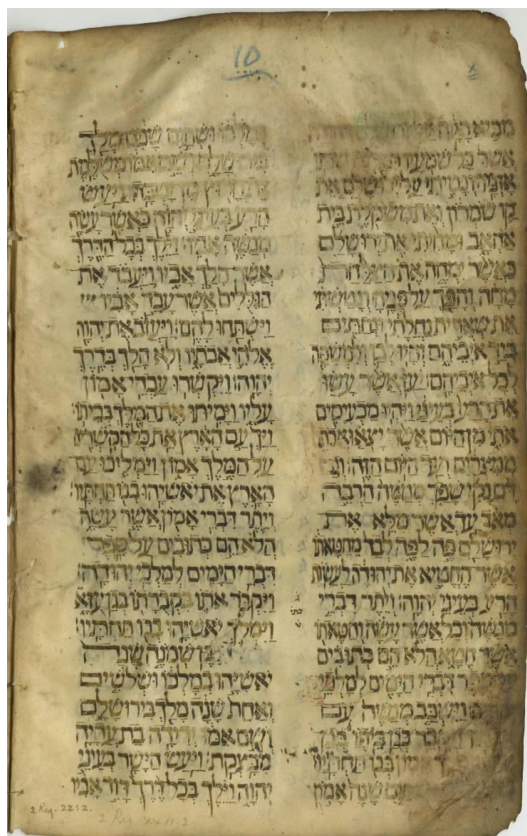 10
מביא רעה על ירושלם
אשר כל שמעיו
אזניו ונטיתי על ירושלם את
קו שמרון ואת משקלת בית
אחאב ומחיתי את ירושלם
כאשר ימחה את הצלחת
מחה והפך על פניה ונטשתי
את שארית נחלתי ונתתים
ביד איביהם והיו לבז ולמשסה
לכל איביהם יען אשר עשו
את הרע בעיני ויהיו מכעיסים
אתי מן היום אשר יצאו
ממצרים ועד היום הזה וגם
דם נקי שפך מנשה הרבה
מאד עד אשר מלא את
ירושלם פה לפה לבד מחטאתו
אשר החטיא את יהודה לעשות
הרע בעיני יהוה ויתר דברי
מנשה וכל אשר עשה וחטאתו
אשר חטא הלא הם כתובים
דברי הימים למלכי
וישכב מנשה עם
בגן ביתו בגן
בנו תחתיו
שנה אמון
במלכו ושתים שנים מלך
בירושלם ושם אמו משלמת
בת חרוץ מן יטבה ויעש
הרע בעיני יהוה כאשר עשה
מנשה אביו וילך בכל הדרך
אשר הלך אביו ויעבד את
הגללים אשר עבד אביו
וישתחו להם ויעזב את יהוה
אלהי אבתיו ולא הלך בדרך
יהוה ויקשרו עבדי אמון
עליו וימיתו את המלך בביתו
ויך עם הארץ את כל הקשרים
על המלך אמון וימליכו עם
הארץ את יאשיהו בנו תחתיו
ויתר דברי אמון אשר עשה
הלא הם כתובים על ספר
דברי הימים למלכי יהודה
ויקבר אתו בקברתו בגן עזא
וימלך יאשיהו בנו תחתיו
בן שמנה שנה
יאשיהו במלכו ושלשים
ואחת שנה מלך בירושלם
ושם אמו ידידה בת עדיה
מבצקת ויעש הישר בעיני
יהוה וילך בכל דרך דוד אביו
2 Reg. 22 12.
2 Reg xxii. 2